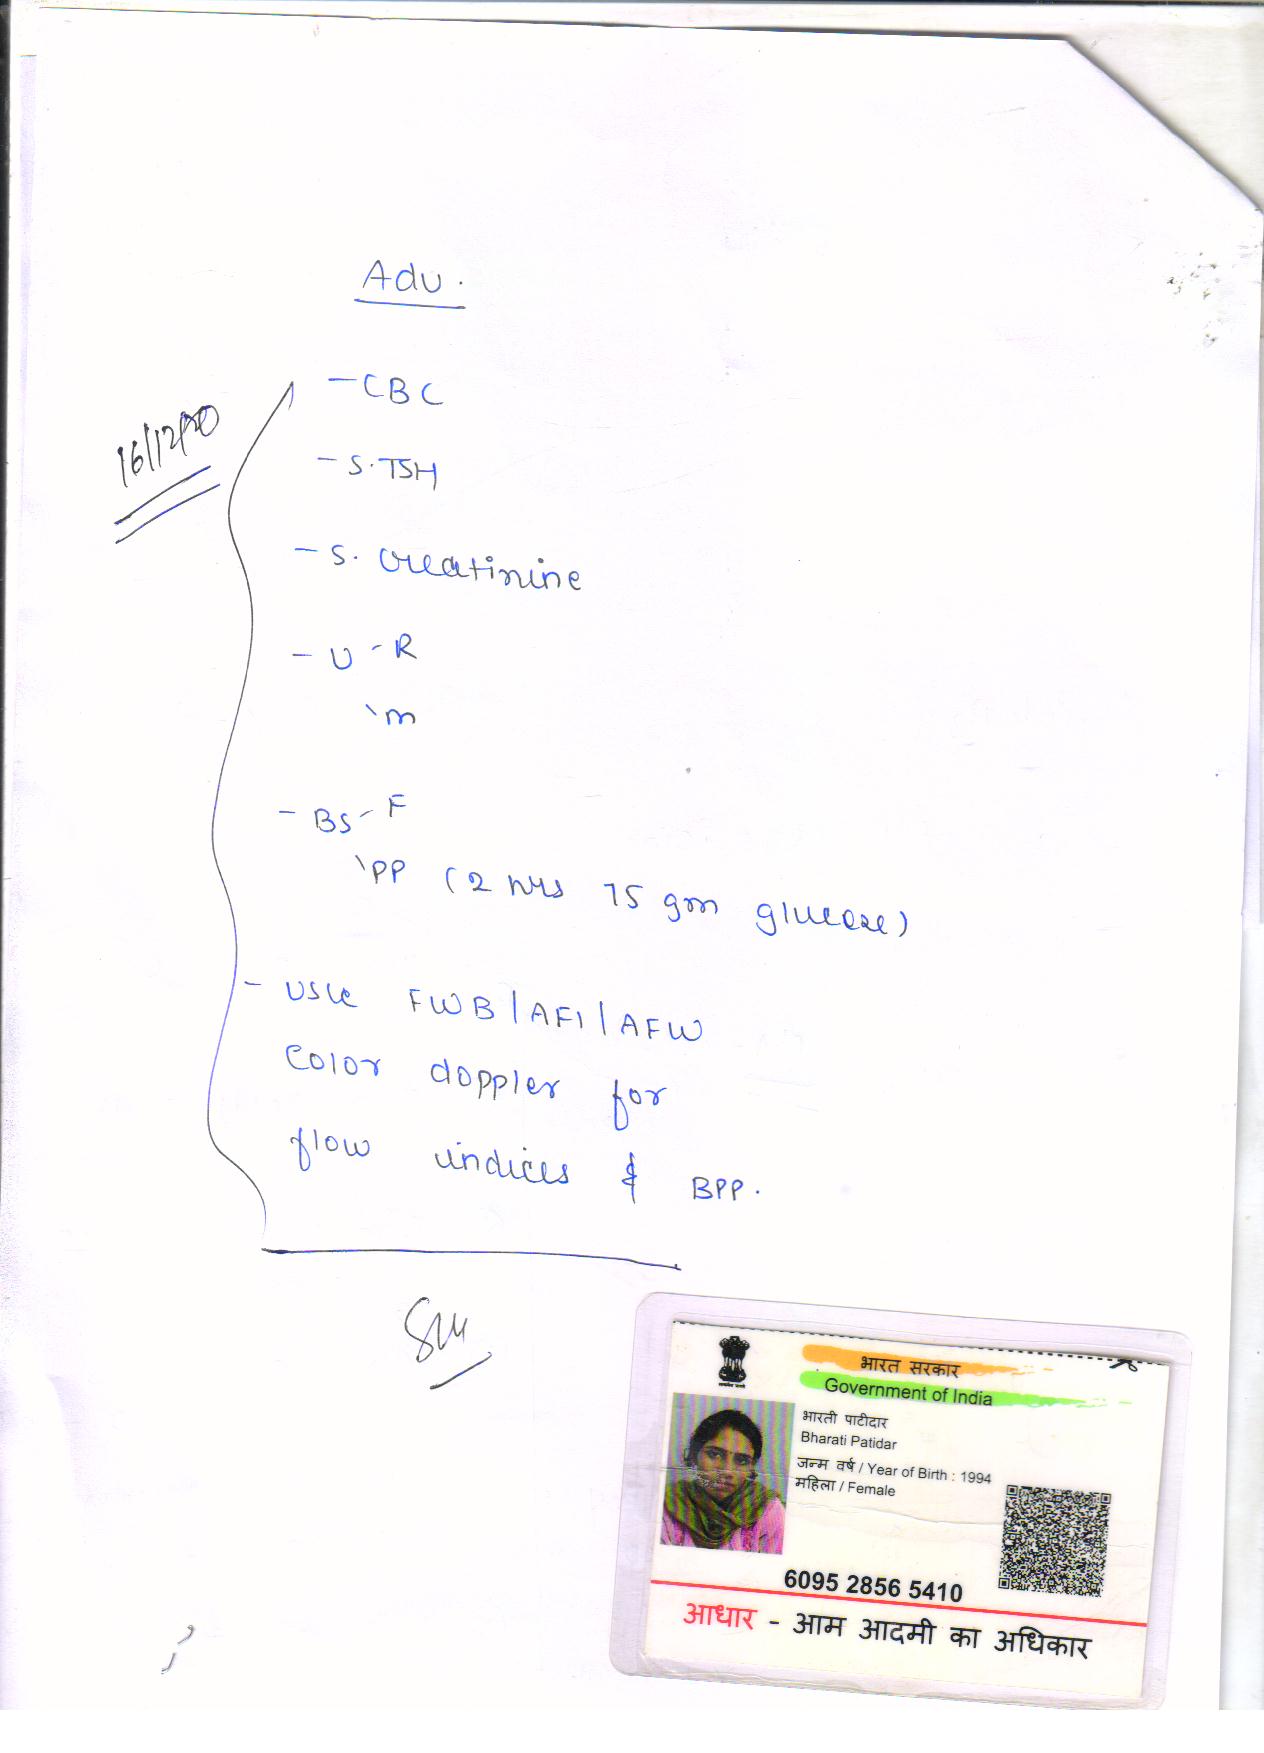 Adv.
16/12/20
- CBC
- S. TSH
- S. creatinine
- U - R
\ m
- BS - F
\ PP (2 hrs 75 gm glucose)
- USG FWB / AFI / AFW
Color doppler for
flow indices & BPP.
भारत सरकार
Government of India
भारती पाटीदार
Bharati Patidar
जन्म वर्ष / Year of Birth : 1994
महिला / Female
6095 2856 5410
आधार - आम आदमी का अधिकार